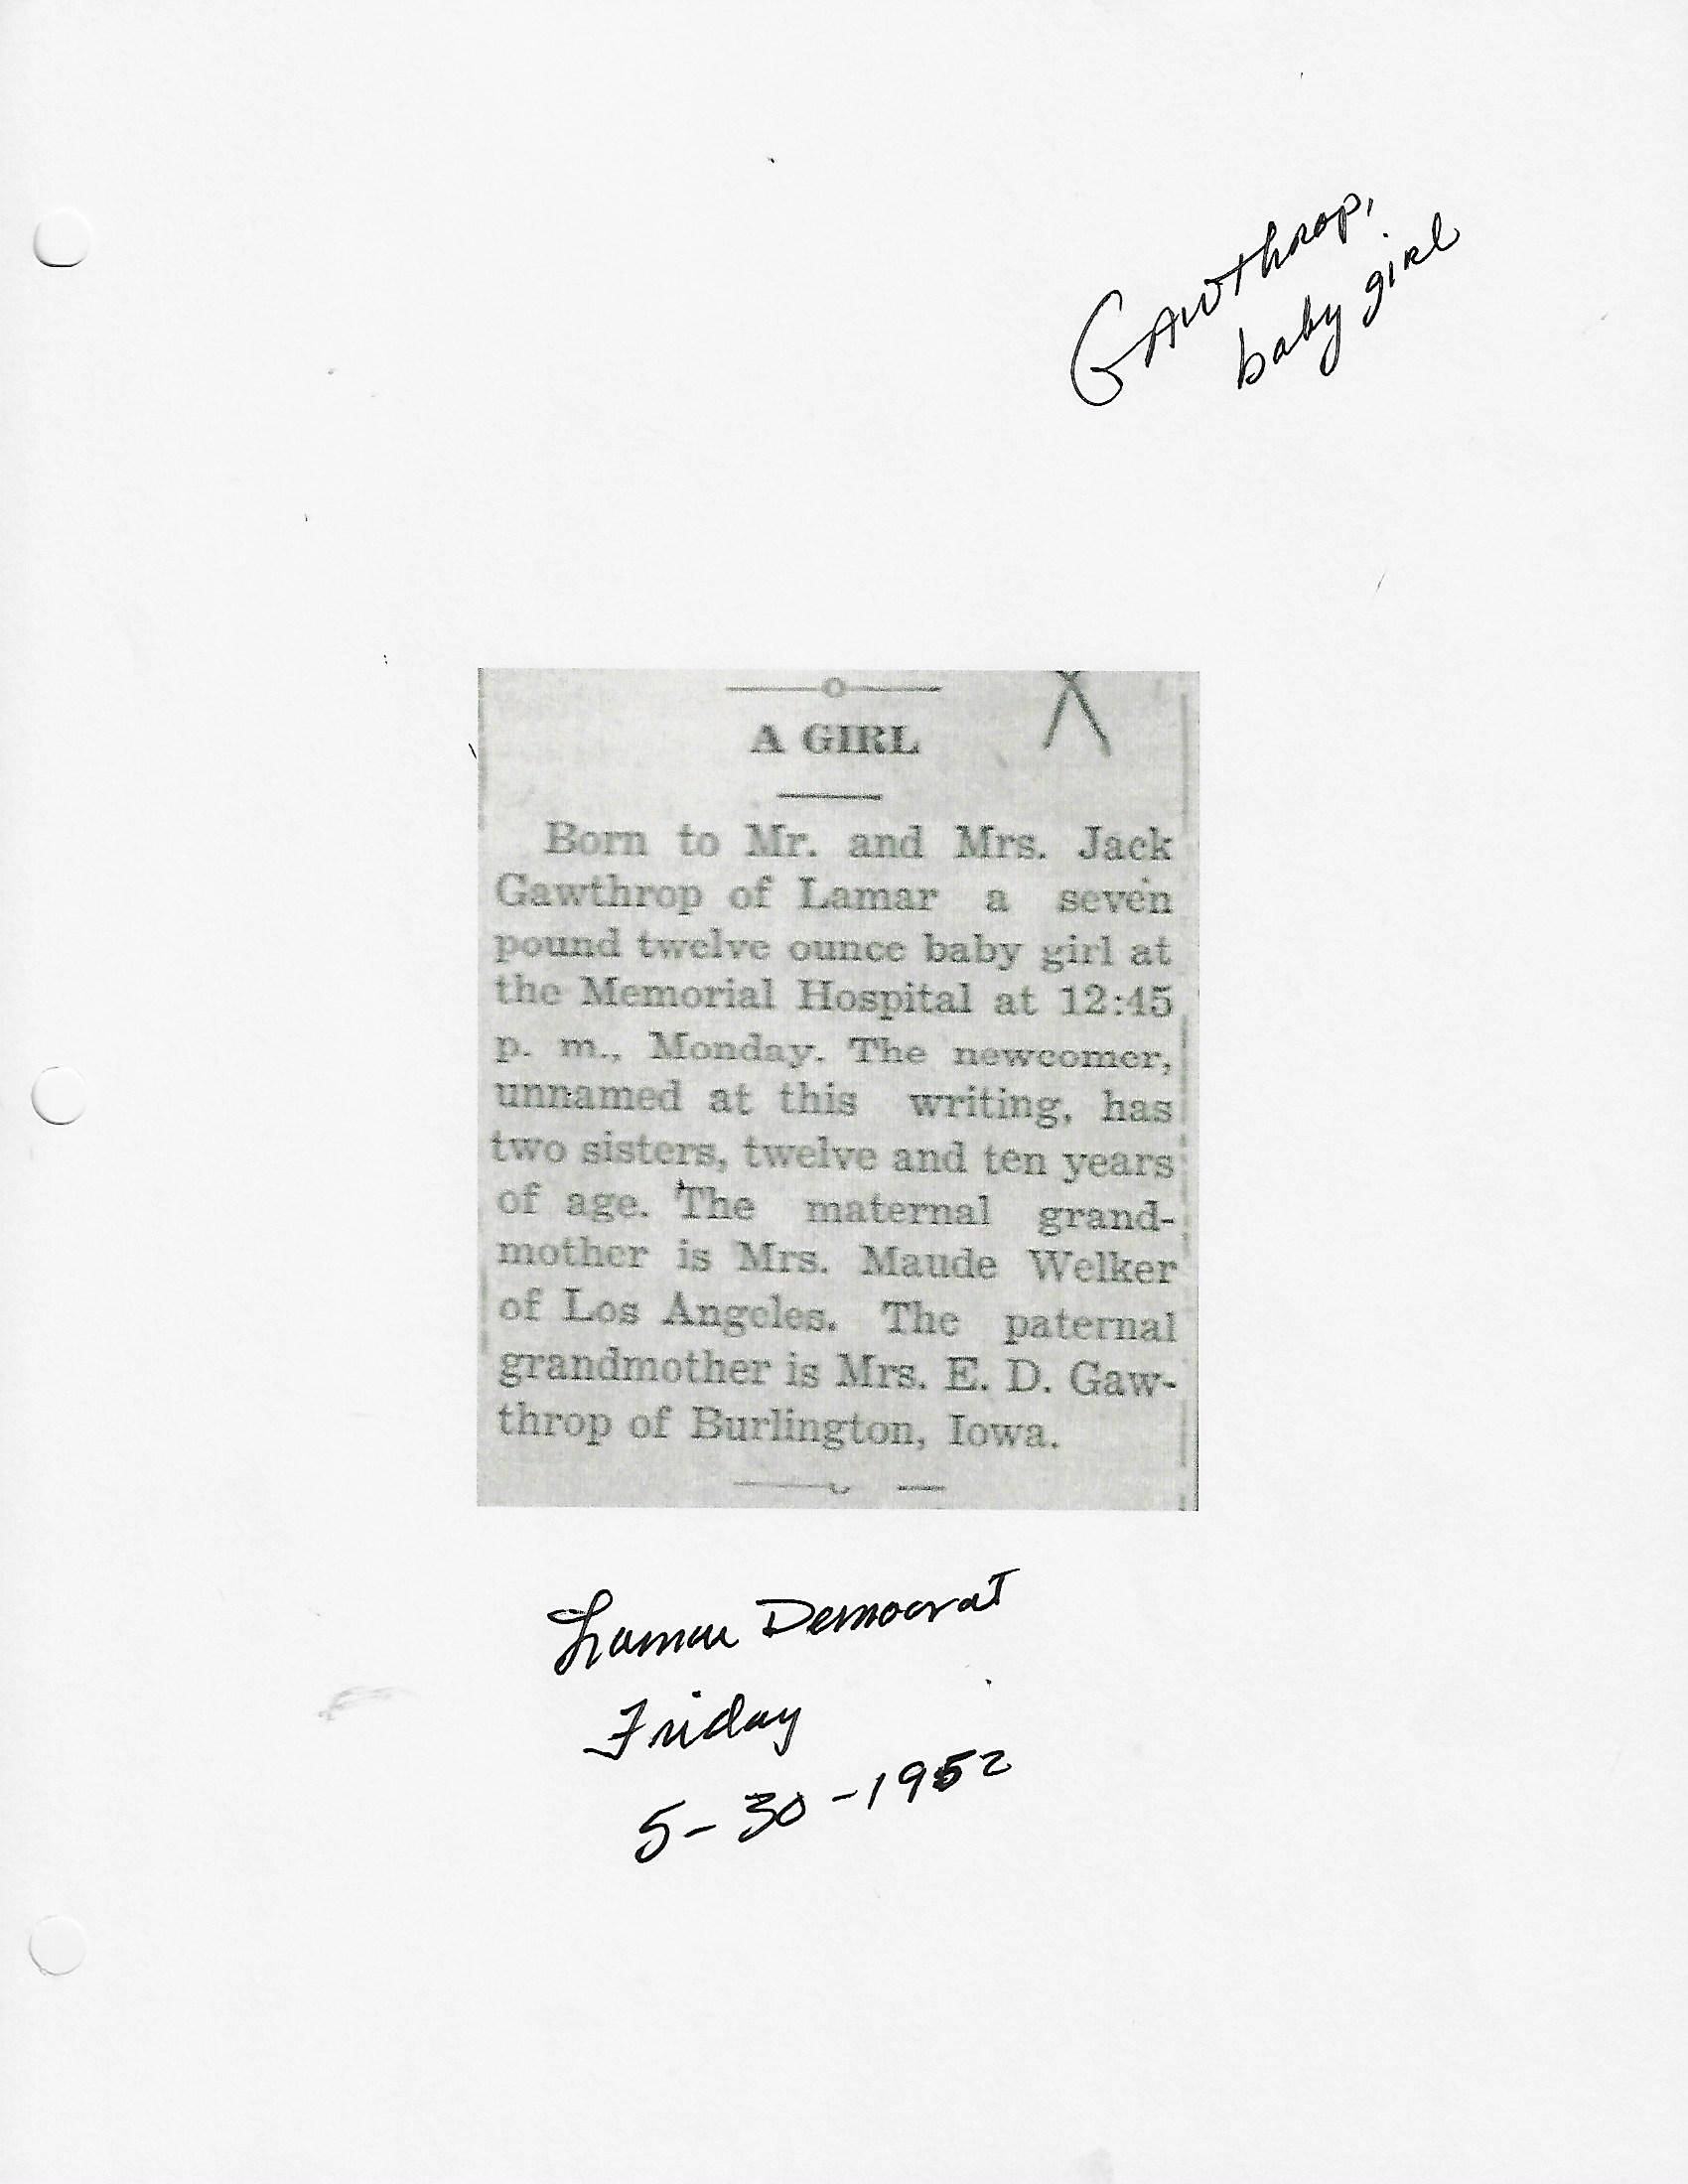 Gawthrop,
baby girl
A GIRL
Born to Mr. and Mrs. Jack
Gawthrop of Lamar a seven
pound twelve ounce baby girl at
the Memorial Hospital at 12:45
p. m., Monday. The newcomer,
unnamed at this writing, has
two sisters, twelve and ten years
of age. The maternal grand-
mother is Mrs. Maude Welker
of Los Angeles. The paternal
grandmother is Mrs. E. D. Gaw-
throp of Burlington, Iowa.
Lamar Democrat
Friday
5-30-1952